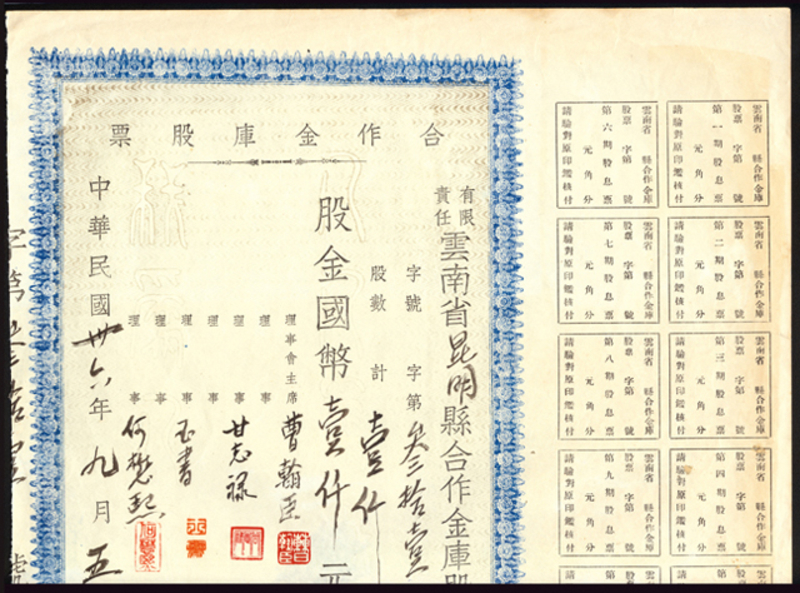 合作金庫股票
有限
責任
雲南省昆明縣合作金庫股
字號 字第 叁拾壹
股數 計 壹仟
股金國幣壹仟元
理事會主席 曹翰臣
理事
理事 甘志祿
理事
理事 玉書
理事
理事 何懋熙
中華民國卅六年九月五
字第
號
雲南省 縣合作金庫
股票 字第 號
第一期股息票
元角分
請驗對原印鑑核付
雲南省 縣合作金庫
股票 字第 號
第六期股息票
元角分
請驗對原印鑑核付
雲南省 縣合作金庫
股票 字第 號
第二期股息票
元角分
請驗對原印鑑核付
雲南省 縣合作金庫
股票 字第 號
第七期股息票
元角分
請驗對原印鑑核付
雲南省 縣合作金庫
股票 字第 號
第三期股息票
元角分
請驗對原印鑑核付
雲南省 縣合作金庫
股票 字第 號
第八期股息票
元角分
請驗對原印鑑核付
雲南省 縣合作金庫
股票 字第 號
第四期股息票
元角分
請驗對原印鑑核付
雲南省 縣合作金庫
股票 字第 號
第九期股息票
元角分
請驗對原印鑑核付
雲南省
股票
第
請
雲南省
股票
第
請